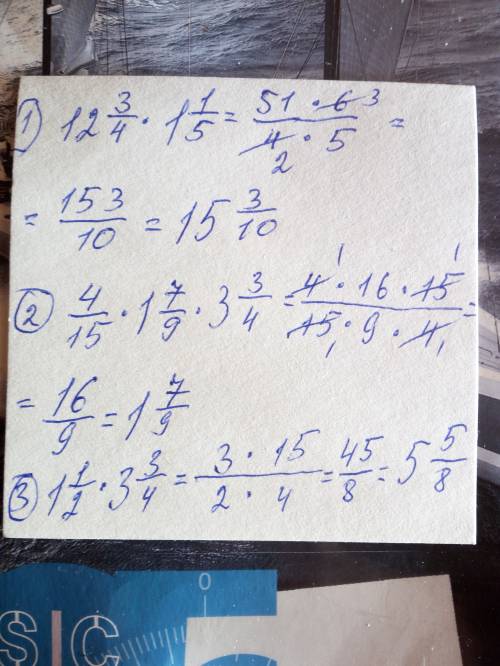 1) 12 3/4 · 1 1/5 = (51 · 6 3)/(4 2 · 5) =
= 153/10 = 15 3/10
2) 4/15 · 1 7/9 · 3 3/4 = (4 1 · 16 · 15 1)/(15 1 · 9 · 4 1) =
= 16/9 = 1 7/9
3) 1 1/2 · 3 3/4 = (3 · 15)/(2 · 4) = 45/8 = 5 5/8
0
SIC